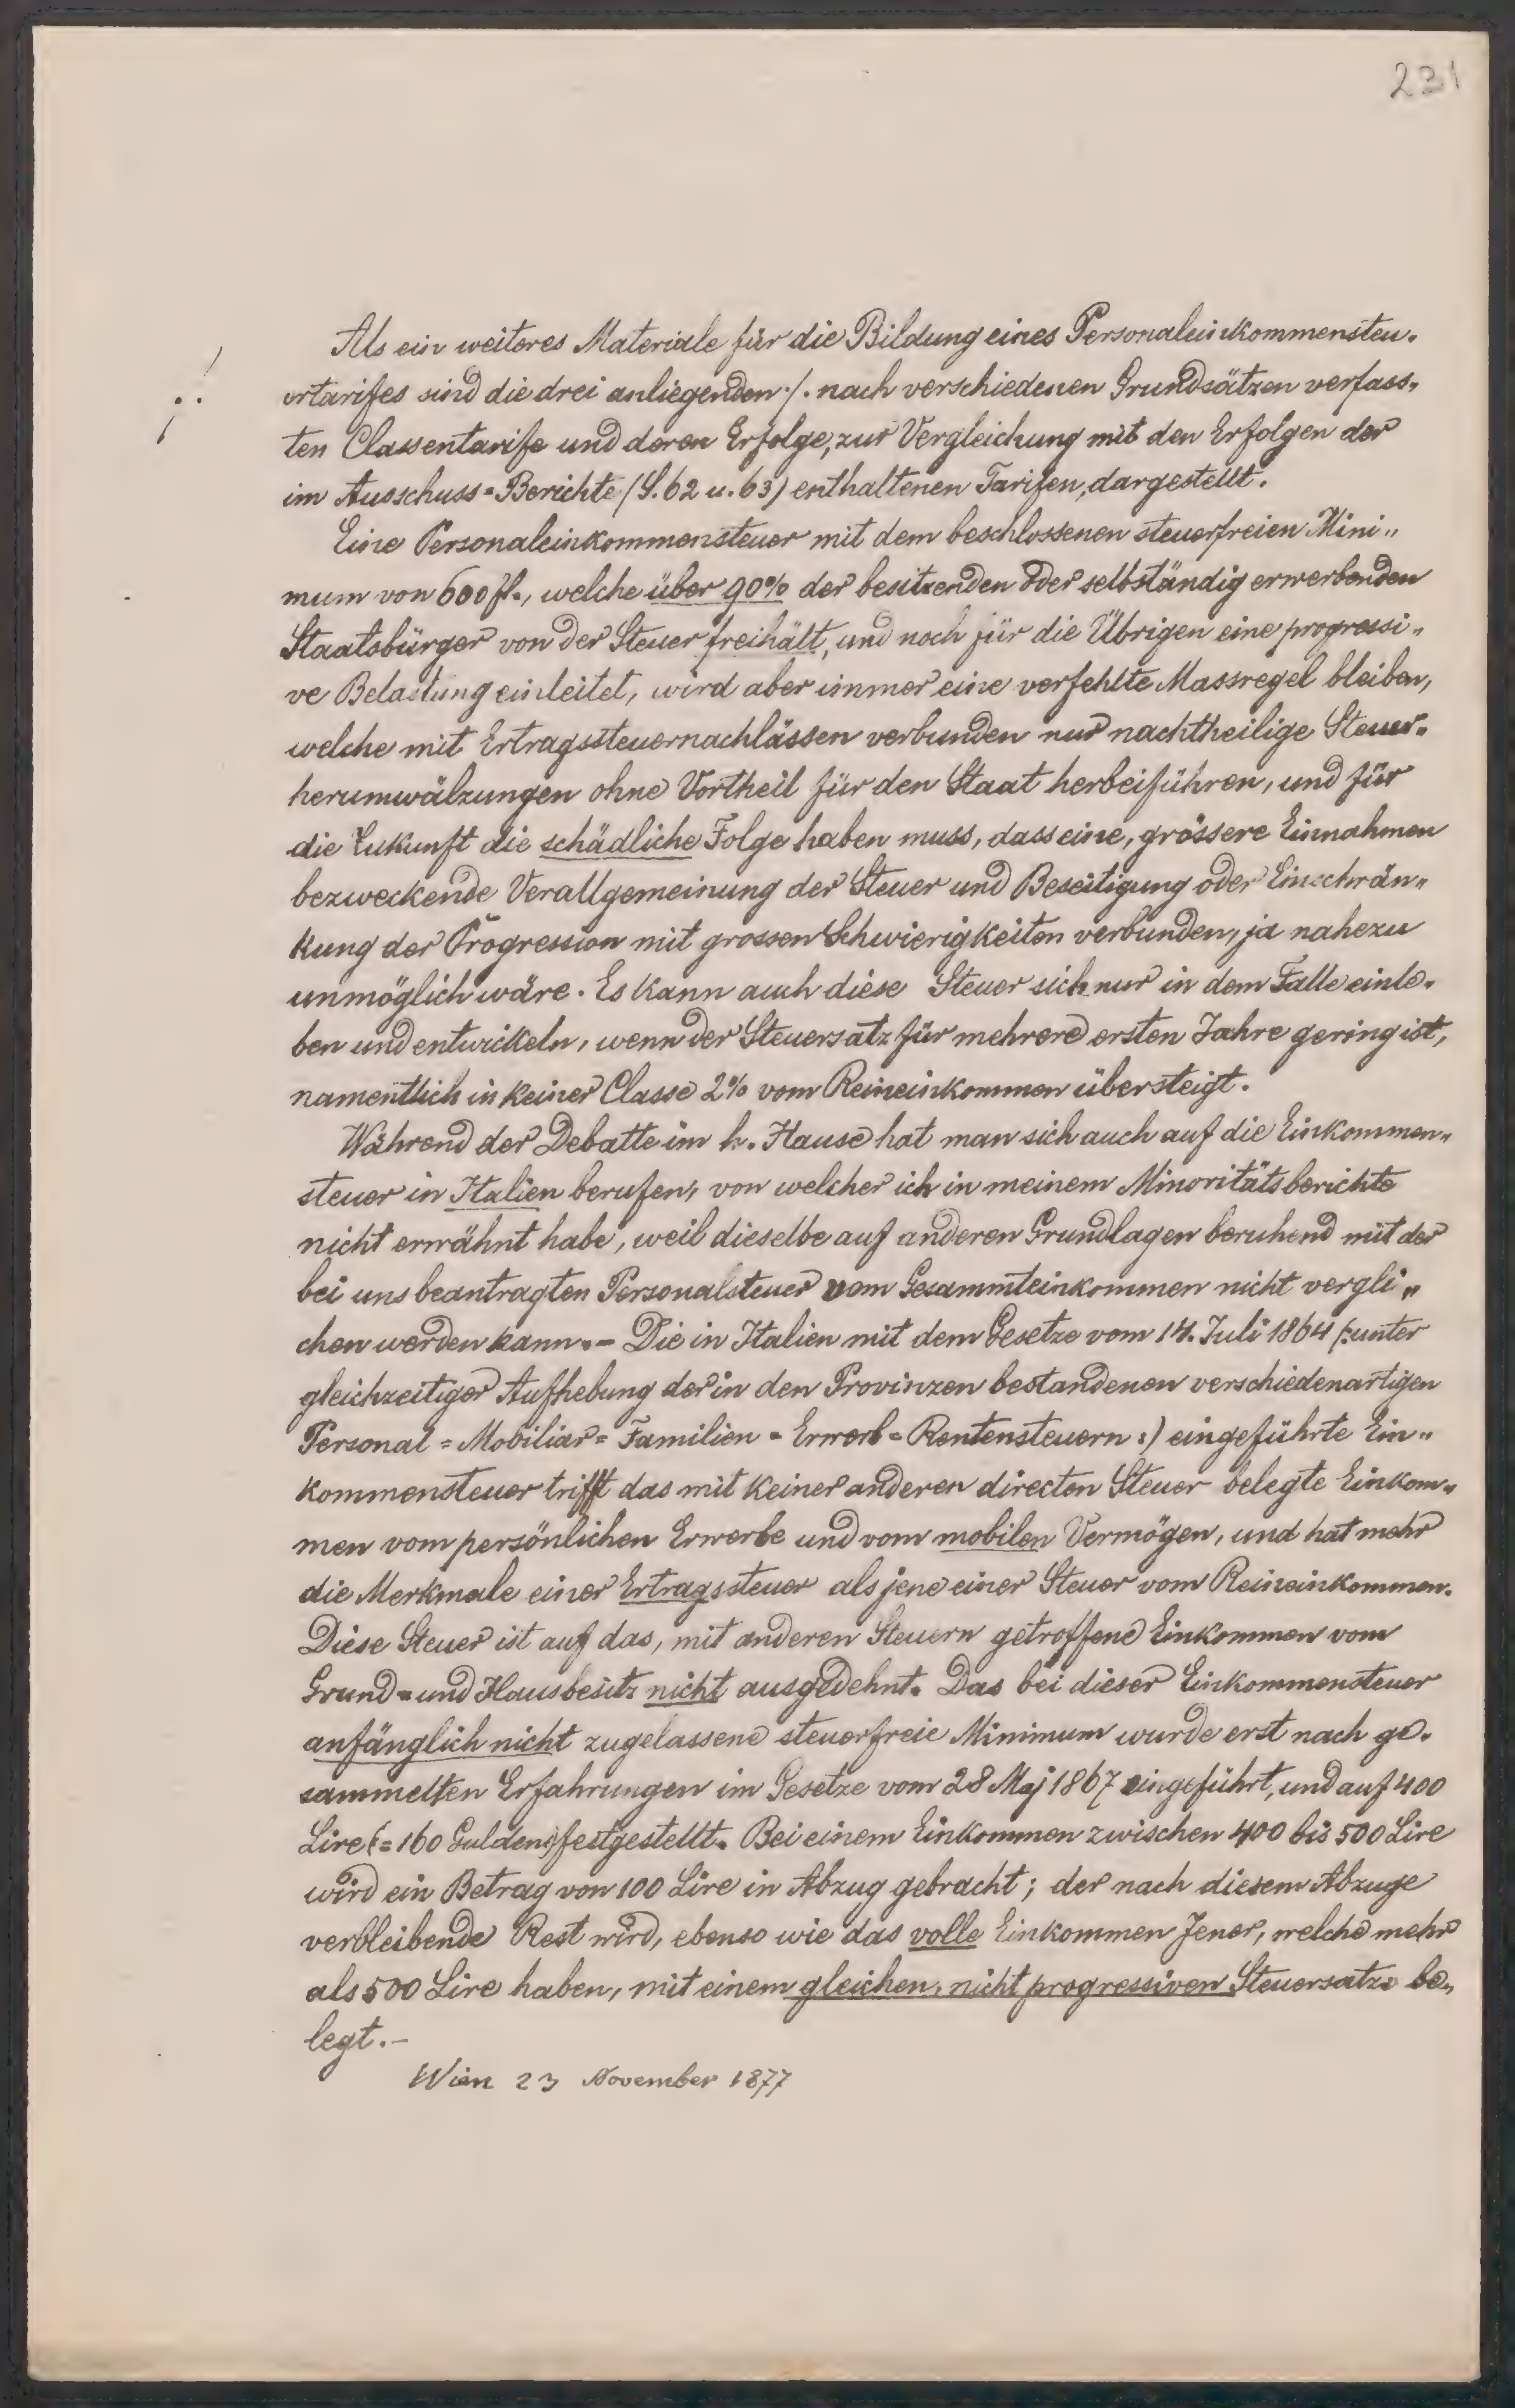 231
Als ein weiteres Materiale für die Bildung eines Personaleinkommensteu-
ertarifes sind die drei anliegenden ·/. nach verschiedenen Grundsätzen verfass-
ten Classentarife und deren Erfolge, zur Vergleichung mit den Erfolgen der
im Ausschuss=Berichte (S. 62 u. 63) enthaltenen Tarifen, dargestellt.
Eine Personaleinkommensteuer mit dem beschlossenen steuerfreien Mini„
mum von 600 fl., welche über 90% der besitzenden oder selbständig erwerbenden
Staatsbürger von der Steuer freihält, und noch für die Übrigen eine progressi„
ve Belastung einleitet, wird aber immer eine verfehlte Massregel bleiben,
welche mit Ertragssteuernachlässen verbunden nur nachtheilige Steuer-
herumwälzungen ohne Vortheil für den Staat herbeiführen, und für
die Zukunft die schädliche Folge haben muss, dass eine, grössere Einnahmen
bezweckende Verallgemeinung der Steuer und Beseitigung oder Einschrän„
kung der Progression mit grossen Schwierigkeiten verbunden, ja nahezu
unmöglich wäre. Es kann auch diese Steuer sich nur in dem Falle einle-
ben und entwickeln, wenn der Steuersatz für mehrere ersten Jahre gering ist,
namentlich in keiner Classe 2% vom Reineinkommen übersteigt.
Während der Debatte im h. Hause hat man sich auch auf die Einkommen„
steuer in Italien berufen, von welcher ich in meinem Minoritätsberichte
nicht erwähnt habe, weil dieselbe auf anderen Grundlagen beruhend mit der
bei uns beantragten Personalsteuer vom Gesammteinkommen nicht vergli„
chen werden kann.- Die in Italien mit dem Gesetze vom 14. Juli 1864 (:unter
gleichzeitiger Aufhebung der in den Provinzen bestandenen verschiedenartigen
Personal = Mobiliar = Familien = Erwerb = Rentensteuern :) eingeführte Ein„
kommensteuer trifft das mit keiner anderen directen Steuer belegte Einkom„
men vom persönlichen Erwerbe und vom mobilen Vermögen, und hat mehr
die Merkmale einer Ertragssteuer als jene einer Steuer vom Reineinkommen.
Diese Steuer ist auf das, mit anderen Steuern getroffene Einkommen vom
Grund= und Hausbesitz nicht ausgedehnt. Das bei dieser Einkommensteuer
anfänglich nicht zugelassene steuerfreie Minimum wurde erst nach ge-
sammelten Erfahrungen im Gesetze vom 28 Maj 1867 eingeführt, und auf 400
Lire (=160 Gulden) festgestellt. Bei einem Einkommen zwischen 400 bis 500 Lire
wird ein Betrag von 100 Lire in Abzug gebracht; der nach diesem Abzuge
verbleibende Rest wird, ebenso wie das volle Einkommen Jener, welche mehr
als 500 Lire haben, mit einem gleichen, nicht progressiven Steuersatze be„
legt.-
Wien 23 November 1877